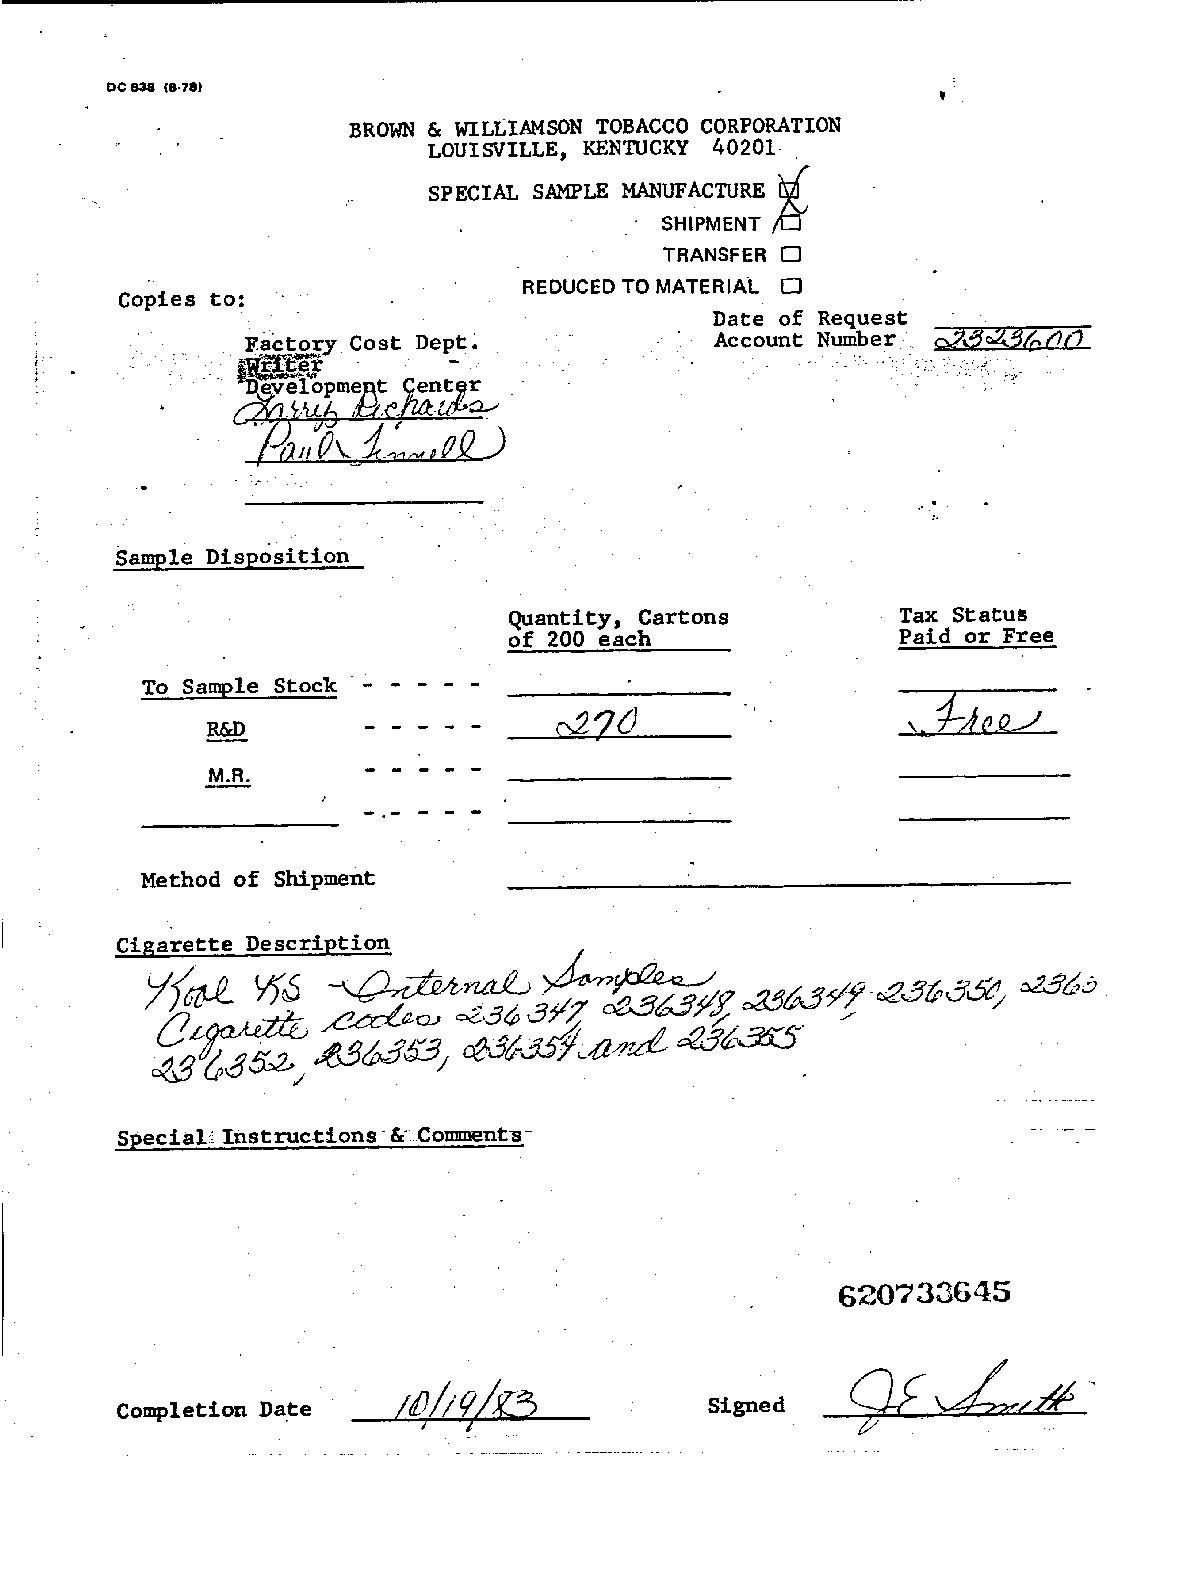 DC 838 (8-78)
BROWN & WILLIAMSON TOBACCO CORPORATION
LOUISVILLE, KENTUCKY 40201
SPECIAL SAMPLE MANUFACTURE
SHIPMENT
TRANSFER
REDUCED TO MATERIAL
Copies to:
Date of Request
Factory Cost Dept.
Account Number 2323600
Writer
Development Center
Larry Richards
Paul
Sample Disposition
Quantity, Cartons Tax Status
of 200 each Paid or Free
To Sample Stock - - - - -
R&D - - - - - 270 Free
M.R. - - - - -
- - - - -
Method of Shipment
Cigarette Description
Kool KS - Internal Samples
Cigarette codes 236347, 236348, 236349, 236350, 2363
236352, 236353, 236354 and 236355
Special Instructions & Comments
620733645
Completion Date 10/19/83 Signed JE Smith